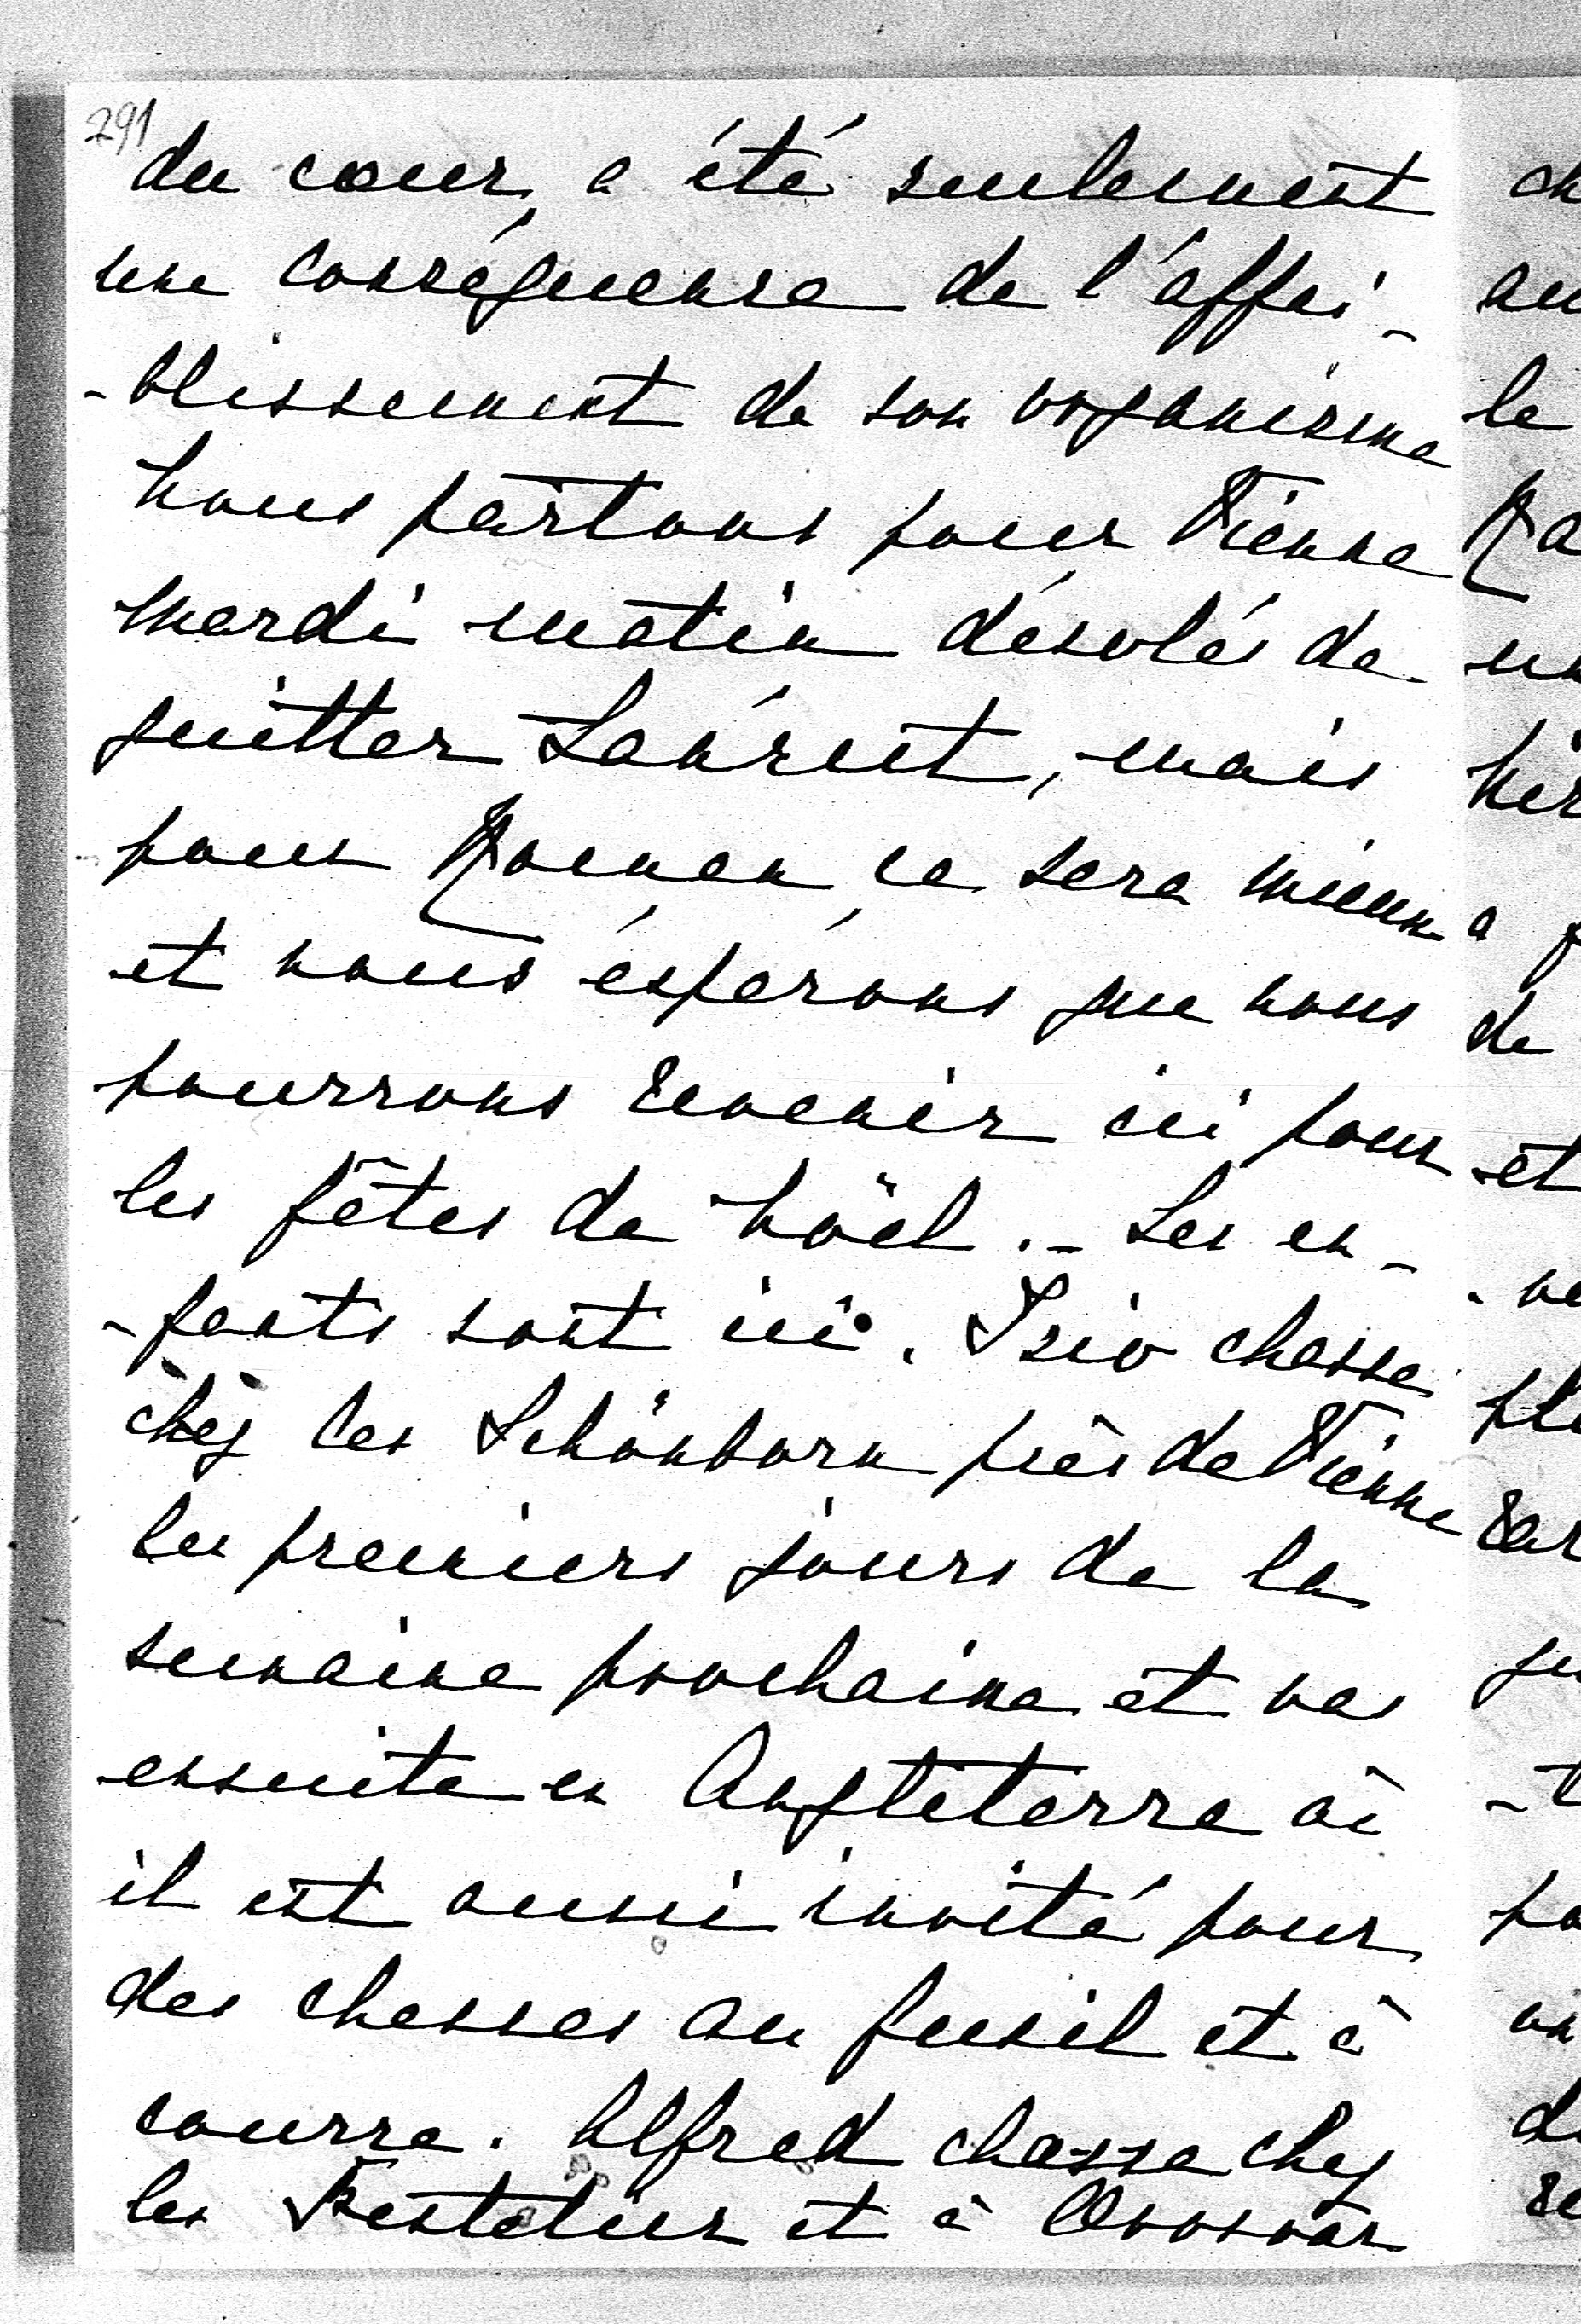 291
du cœur, a été seulement
une conséquence de l'affai-
-blissement de son organisme
Nous partons pour Vienne
mardi matin désolés de
quitter Lancut, mais
pour Roman ce sera mieux
et nous espérons que nous
pourrons revenir ici pour
les fêtes de Noël. - Les en-
-fants sont ici. Jzio chasse
chez les Schönborn près de Vienne
les premiers jours de la
semaine prochaine et va
ensuite en Angleterre où
il est aussi invité pour
des chasses au fusil et à
courre. Alfred chasse chez
les Festetics et à Orosvár